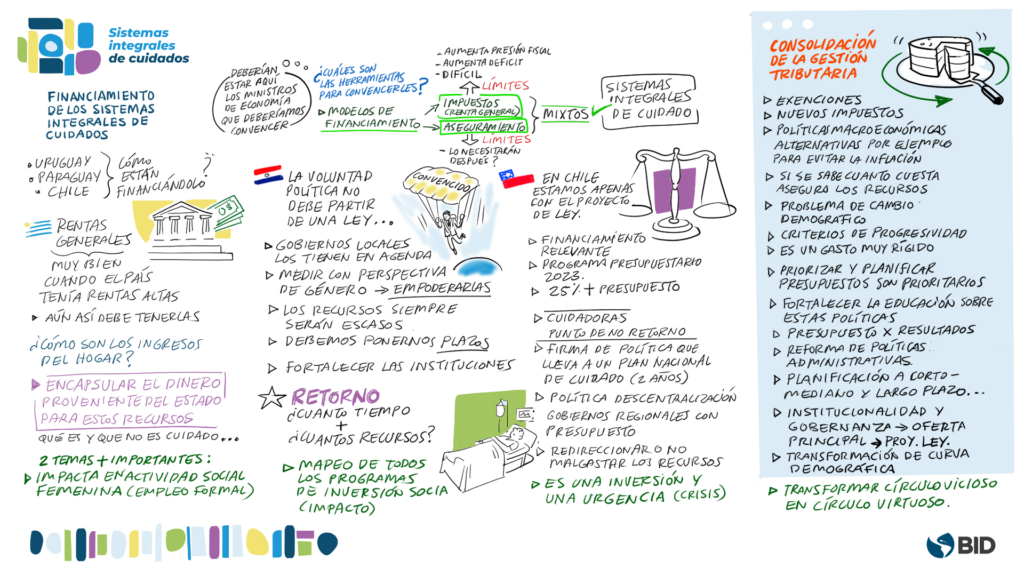 Sistemas
integrales
de cuidados
FINANCIAMIENTO
DE LOS SISTEMAS
INTEGRALES DE
CUIDADOS
DEBERÍAN
ESTAR AQUÍ
LOS MINISTROS
DE ECONOMÍA
QUE DEBERÍAMOS
CONVENCER
¿CUÁLES SON
LAS HERRAMIENTAS
PARA CONVENCERLES?
▷ MODELOS DE
FINANCIAMIENTO
- AUMENTA PRESIÓN FISCAL
- AUMENTA DEFICIT
- DIFICIL
LÍMITES
IMPUESTOS
(RENTA GENERAL)
ASEGURAMIENTO
LÍMITES
- LO NECESITARÁN
DESPUÉS?
MIXTOS
SISTEMAS
INTEGRALES
DE CUIDADO
• URUGUAY
• PARAGUAY
• CHILE
¿CÓMO
ESTÁN
FINANCIÁNDOLO?
RENTAS
GENERALES
MUY BIEN
CUANDO EL PAÍS
TENÍA RENTAS ALTAS
▸ AÚN ASÍ DEBE TENERLAS
¿CÓMO SON LOS INGRESOS
DEL HOGAR?
▷ ENCAPSULAR EL DINERO
PROVENIENTE DEL ESTADO
PARA ESTOS RECURSOS
QUÉ ES Y QUE NO ES CUIDADO...
2 TEMAS + IMPORTANTES:
▷ IMPACTA EN ACTIVIDAD SOCIAL
FEMENINA (EMPLEO FORMAL)
LA VOLUNTAD
POLÍTICA NO
DEBE PARTIR
DE UNA LEY...
CONVENCIDO
▷ GOBIERNOS LOCALES
LOS TIENEN EN AGENDA
▷ MEDIR CON PERSPECTIVA
DE GÉNERO → EMPODERARLAS
▷ LOS RECURSOS SIEMPRE
SERÁN ESCASOS
▷ DEBEMOS PONERNOS PLAZOS
▷ FORTALECER LAS INSTITUCIONES
RETORNO
¿CUANTO TIEMPO
+
¿CUANTOS RECURSOS?
▷ MAPEO DE TODOS
LOS PROGRAMAS
DE INVERSIÓN SOCIA
(IMPACTO)
EN CHILE
ESTAMOS APENAS
CON EL PROYECTO
DE LEY.
▷ FINANCIAMIENTO
RELEVANTE
▷ PROGRAMA PRESUPUESTARIO
2023.
▷ 25% + PRESUPUESTO
▷ CUIDADORAS
PUNTO DE NO RETORNO
▷ FIRMA DE POLÍTICA QUE
LLEVA A UN PLAN NACIONAL
DE CUIDADO (2 AÑOS)
▷ POLÍTICA DESCENTRALIZACIÓN
GOBIERNOS REGIONALES CON
PRESUPUESTO
▷ REDIRECCIONAR O NO
MALGASTAR LOS RECURSOS
▷ ES UNA INVERSIÓN Y
UNA URGENCIA (CRISIS)
CONSOLIDACIÓN
DE LA GESTIÓN
TRIBUTARIA
▷ EXENCIONES
▷ NUEVOS IMPUESTOS
▷ POLÍTICAS MACROECONÓMICAS
ALTERNATIVAS POR EJEMPLO
PARA EVITAR LA INFLACIÓN
▷ SI SE SABE CUANTO CUESTA
ASEGURA LOS RECURSOS
▷ PROBLEMA DE CAMBIO
DEMOGRÁFICO
▷ CRITERIOS DE PROGRESIVIDAD
▷ ES UN GASTO MUY RÍGIDO
▷ PRIORIZAR Y PLANIFICAR
PRESUPUESTOS SON PRIORITARIOS
▷ FORTALECER LA EDUCACIÓN SOBRE
ESTAS POLÍTICAS
▷ PRESUPUESTO X RESULTADOS
▷ REFORMA DE POLÍTICAS
ADMINISTRATIVAS
▷ PLANIFICACIÓN A CORTO-
MEDIANO Y LARGO PLAZO...
▷ INSTITUCIONALIDAD Y
GOBERNANZA → OFERTA
PRINCIPAL → PROY. LEY.
▷ TRANSFORMACIÓN DE CURVA
DEMOGRÁFICA
▷ TRANSFORMAR CÍRCULO VICIOSO
EN CÍRCULO VIRTUOSO.
BID